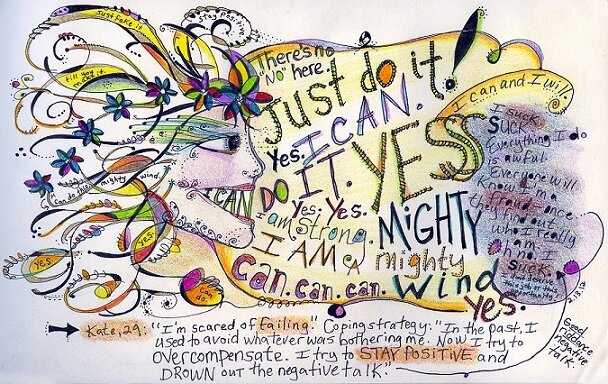 just fake it
till you make it.
Stay Positive
There's no
"No" here.
Just do it!
I can and I will.
Yes. I CAN.
DO IT. YES
Yes. Yes.
I am strong.
I AM A
MIGHTY
mighty
wind
can. can. can.
yes.
I CAN
Can do this.
mighty
wind
yes.
yes.
can do.
I suck.
suck
Everything I do
is awful.
Everyone will
know I'm a
fraud once
they find out
who I really
am.
I no.
suck.
2.13.12
Good
riddance
negative
talk.
Kate, 29: "I'm scared of failing." Coping strategy: "In the past, I
used to avoid whatever was bothering me. Now I try to
overcompensate. I try to STAY POSITIVE and
DROWN OUT the negative talk."